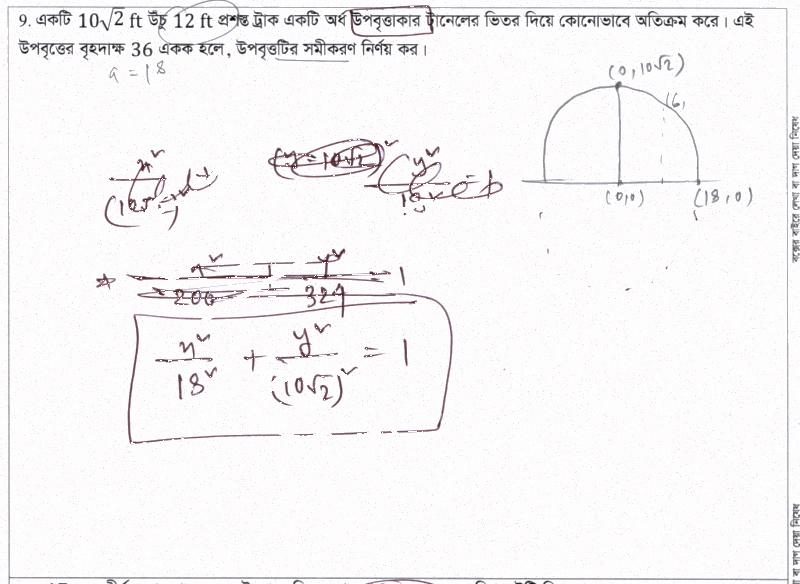 9. একটি 10√2 ft উঁচু 12 ft প্রশস্ত ট্রাক একটি অর্ধ উপবৃত্তাকার টানেলের ভিতর দিয়ে কোনোভাবে অতিক্রম করে। এই
উপবৃত্তের বৃহদাক্ষ 36 একক হলে, উপবৃত্তটির সমীকরণ নির্ণয় কর।
a = 18
(0, 10√2)
(6,
(0,0)
(18,0)
x²/200 + y²/324 = 1
x²/18² + y²/(10√2)² = 1
বক্সের বাইরে লেখা বা দাগ দেয়া নিষেধ
বা দাগ দেয়া নিষেধ